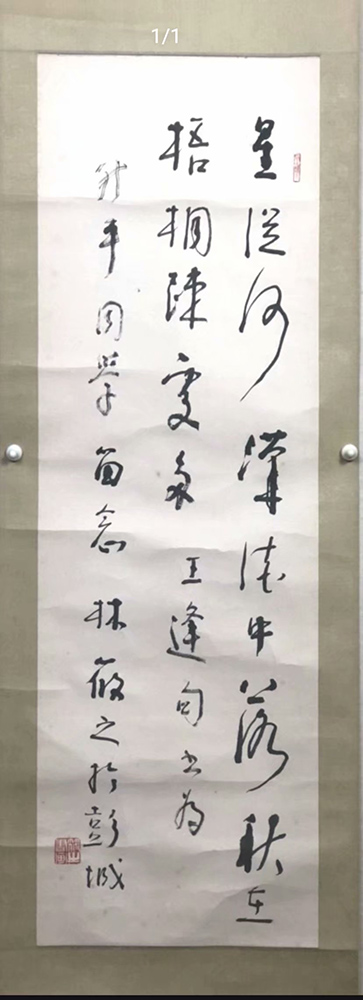 1/1
星從河漢中落秋在
梧桐疎處多王逢句書為
平同學留念林筱之於彭城